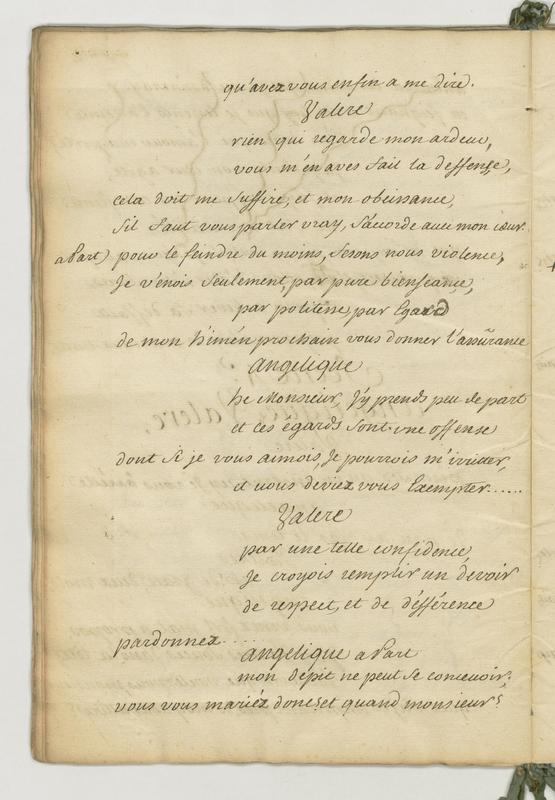 qu'avez vous enfin a me dire.
Valere
rien qui regarde mon ardeur,
vous m'en aves fait la deffense,
cela doit me suffire, et mon obeissance,
sil faut vous parler vray, s'acorde avec mon cœur
a Part) pour le feindre du moins, fesons nous violence,
Je venois seulement, par pure bienseance,
par politesse, par Egard
de mon himén prochain vous donner l'assurance
Angelique
he Monsieur, J'y prends peu de part
et ces égards sont une offense
dont si je vous aimois, Je pourrois m'irriter,
et vous deviez vous Exempter......
Valere
par une telle confidence
Je croyois remplir un devoir
de respect, et de défférence
pardonnez....
angelique a Part
mon dépit ne peut se concevoir;
vous vous mariéz donc? et quand monsieur?